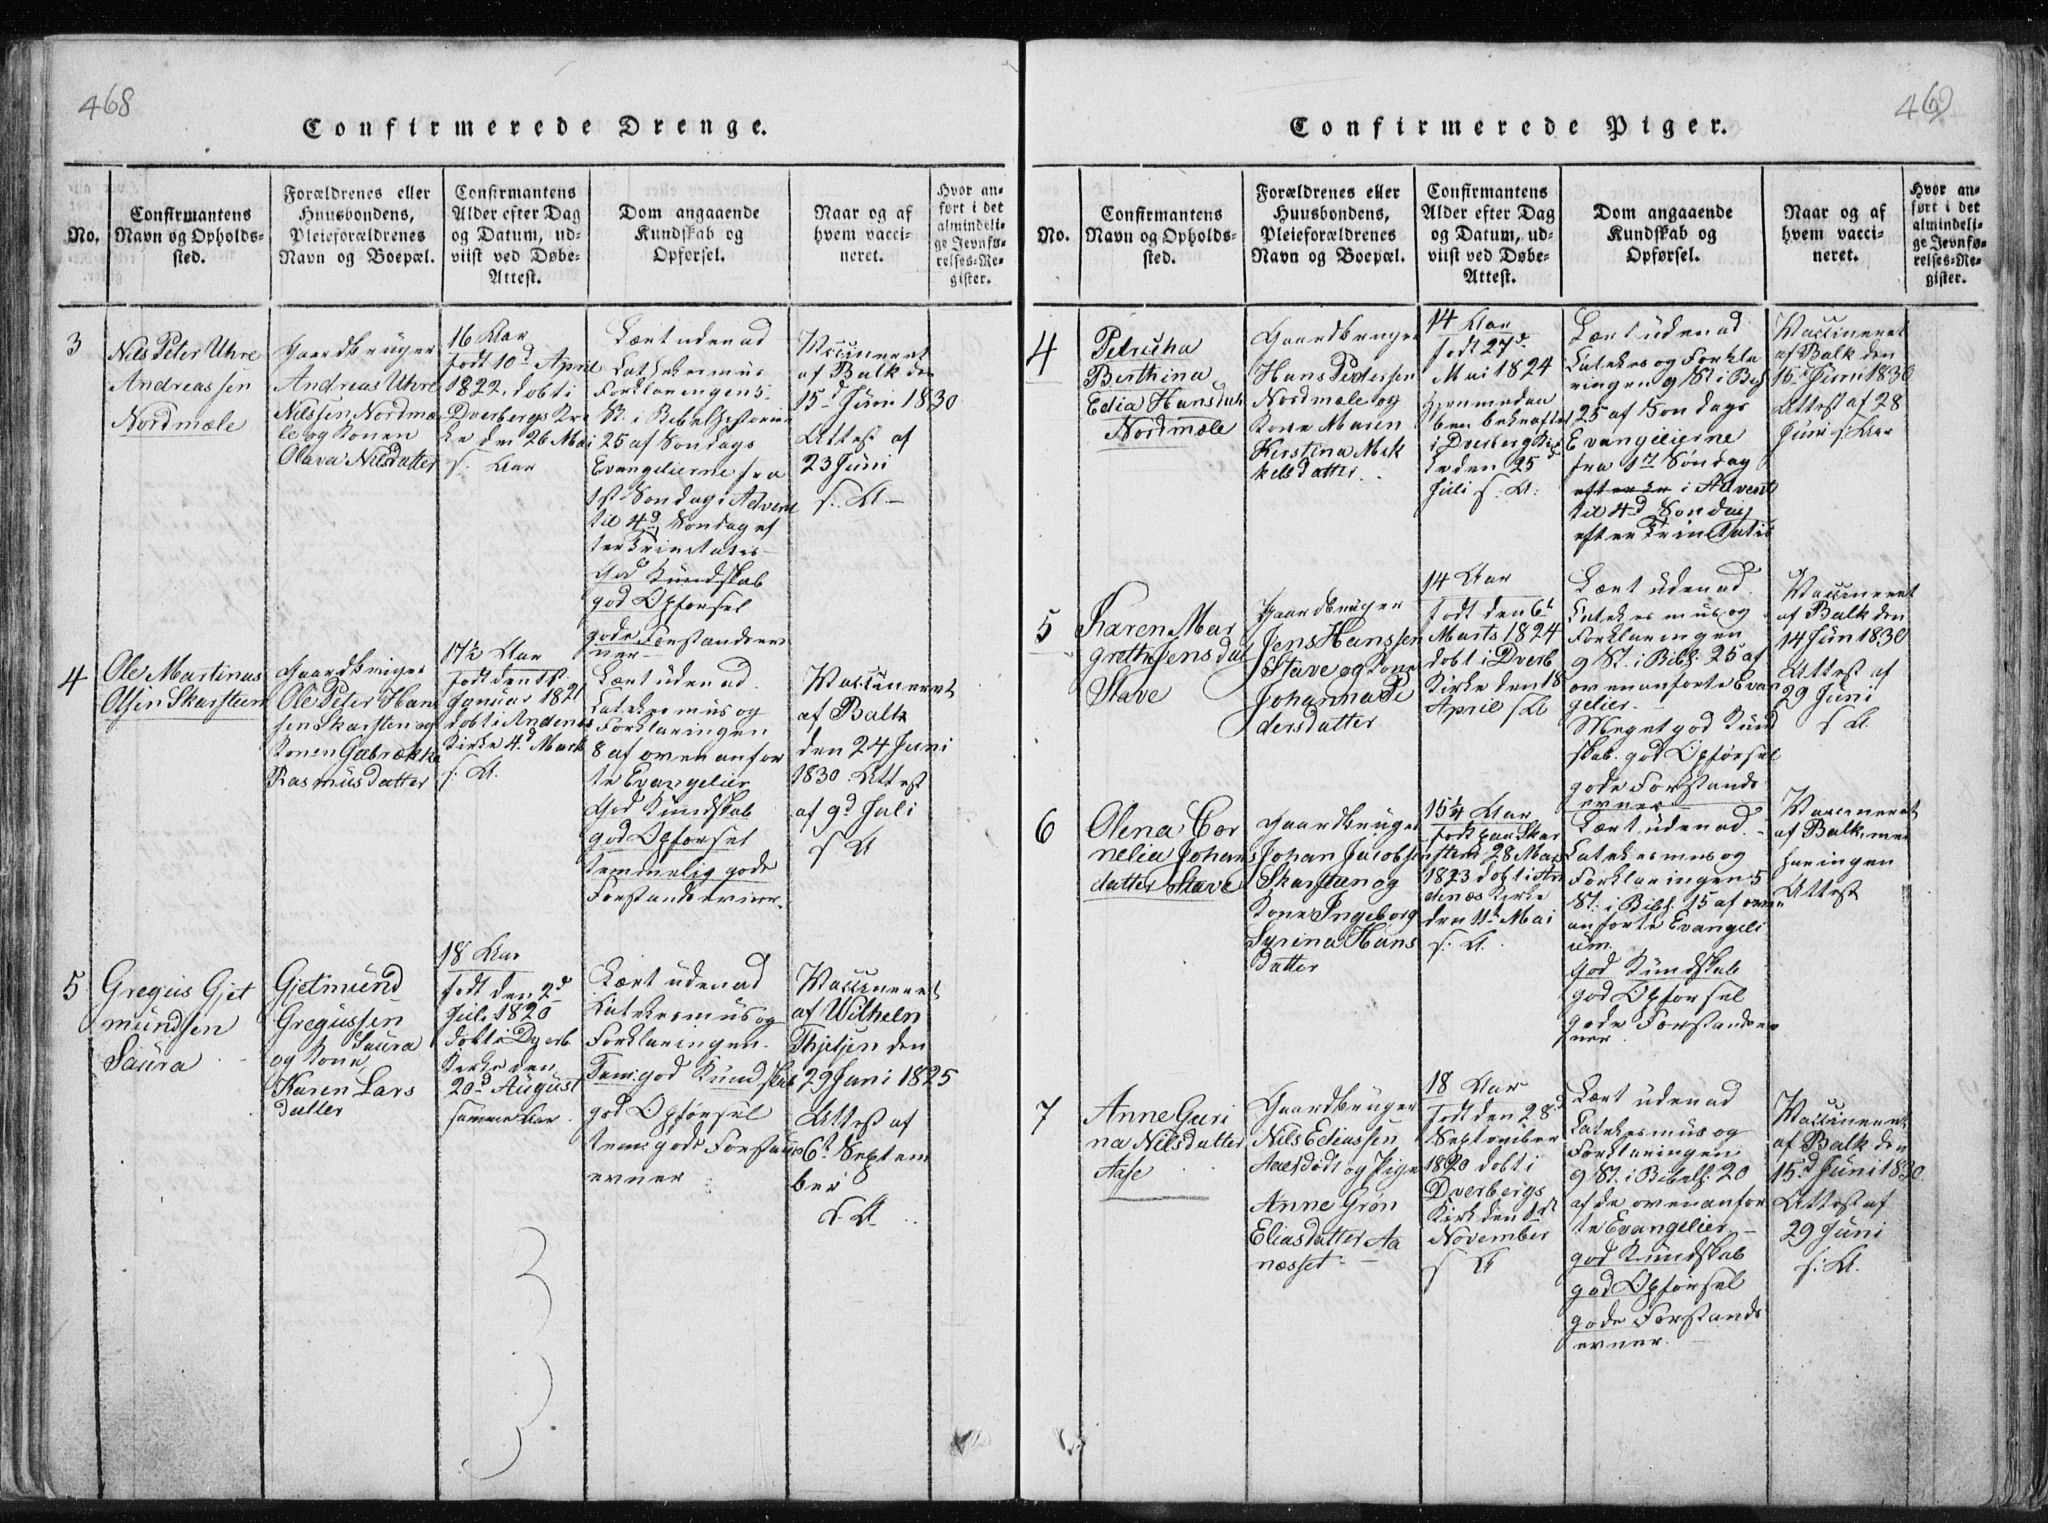 468
Confirmerede Drenge.
No.
Confirmantens
Navn og Opholds-
sted.
Forældrenes eller
Huusbondens,
Pleieforældrenes
Navn og Boepæl.
Confirmantens
Alder efter Dag
og Datum, ud-
viist ved Døbe-
Attest.
Dom angaaende
Kundskab og
Opførsel.
Naar og af
hvem vacci-
neret.
Hvor an-
ført i det
almindeli-
ge Jevnfø-
relses-Re-
gister.
3
Nils Peter Uhre
Andreassen
Nordmæle
Gaardbruger
Andreas Uhre
Nilssen Nordmæ
le og Konen
Olava Nilsdatter
16 Aar
Født 10d April
1822. døbt i
Dverbergs Kir
ke den 26 Mai
s. Aar
Lært udenad
Cathekismus
Forklaringen 5
St. i Bibelhistorien
25 af Søndags
Evangelierne fra
1st Søndag i Advent
til 4d Søndag ef
ter Trinitatis
God Kundskab
god Opførsel
gode Forstandsev
ner
Vaccineret
af Balk den
15d Juni 1830
Attest af
23 Juni
s. A
4
Ole Martinus
Olsen Skarsteen
Gaardbruger
Ole Peter Han
sen Skarsten og
Konen Gæbrekka
Rasmusdatter
17½ Aar
født den
Januar 1821
døbt i Andenes
Kirke 4d Marts
s. A.
Lært udenad
Catekismus og
Forklaringen
8 af ovenanfør
te Evangelier
God Kundskab
god Opførsel
temmelig gode
Forstandsevner.
Vaccineret
af Balk
den 24 Juni
1830. Attest
af 9d Juli
s A
5
Gregus Gjet
mundsen
Saura
Gjetmund
Gregussen
Saura
og Kone
Karen Lars
datter
18 Aar
født den 2d
Juli 1820
døbt i Dverb
Kirke den
20d August
samme Aar.
Lært udenad
Catekismus og
Forklaringen.
Tem: god Kundskab
god Opførsel
tem: gode Forstands
evner
Vaccineret
af Wilhelm
Thjesen den
29 Juni 1825
Attest af
6t Septem
ber
s. A
469
Confirmerede Piger.
No.
Confirmantens
Navn og Opholds-
sted.
Forældrenes eller
Huusbondens,
Pleieforældrenes
Navn og Boepæl.
Confirmantens
Alder efter Dag
og Datum, ud-
viist ved Døbe-
Attest.
Dom angaaende
Kundskab og
Opførsel.
Naar og af
hvem vacci-
neret.
Hvor an-
ført i det
almindeli-
ge Jevnfø-
relses-Re-
gister.
4
Petricha
Berthina
Edia Hansdat
Nordmæle
Gaardbruger
Hans Pedersen
Nordmæle og
Kone Maren
Kirstina Mik
kelsdatter.
14 Aar
født 27d
Mai 1824
hjemmedøb
ben bekræftet
i Dverberg Kir
ke den 25d
Juli s. A.
Lært udenad
Catekis og Forkla
ringen 9 St i Bibl
25 af Søndags
Evangelierne
fra 1st Søndag
i Advent
til 4d Søndag
efter Trinitatis
Vaccineret
af Balk den
15d Juni 1830
Attest af 28
Juni s. Aar
5
Karen Mar
grethe Jensdat
Stave
Gaardbruger
Jens Hanssen
Stave og Kone
Johanna Pe
dersdatter
14 Aar
født den 6t
Marts 1824
døbt i Dverb
Kirke den 18
April s A
Lært udenad.
Catekismus og
Forklaringen
9 St. i Bibl: 25 af
ovenanførte Evan
gelier.
Meget god Kund
skab. god Opførsel
gode Forstands
evner
Vaccineret
af Balk den
14 Juni 1830
Attest af
29 Juni
s A
6
Olena Cor
nelia Johans
datter Stave
Gaardbruger
Johan Jacobsen
Skarsteen og
Kone Ingeborg
Syrina Hans
datter
15¼ Aar
født paa Skar
steen 28 Mars
1823 døbt i An
denæs Kirke
den 11t Mai
s. A.
Lært udenad.
Catekismus og
Forklaringen 5
St. i Bibl: 15 af oven
anførte Evangeli
um.
God Kundskab
god Opførsel
gode Forstandsev
ner.
Vaccineret
af Balk, men
har ingen
Attest
7
Anne Guri
na Nilsdatter
Aase
Gaardbruger
Nils Ediassen
og Pige
Anne Grøn
Eliasdatter Aa
næsset
18 Aar
født den 28d
September
1820 døbt i
Dverbergs
Kirke den 1st
November
s A
Lært udenad
Catekismus og
Forklaringen
9 St. i Bibelh: 20
af de ovenanfør
te Evangelier
god Kundskab
god Opførsel
gode Forstands
evner.
Vaccineret
af Balk den
15d Juni 1830
Attest af
29 Juni
s. A.